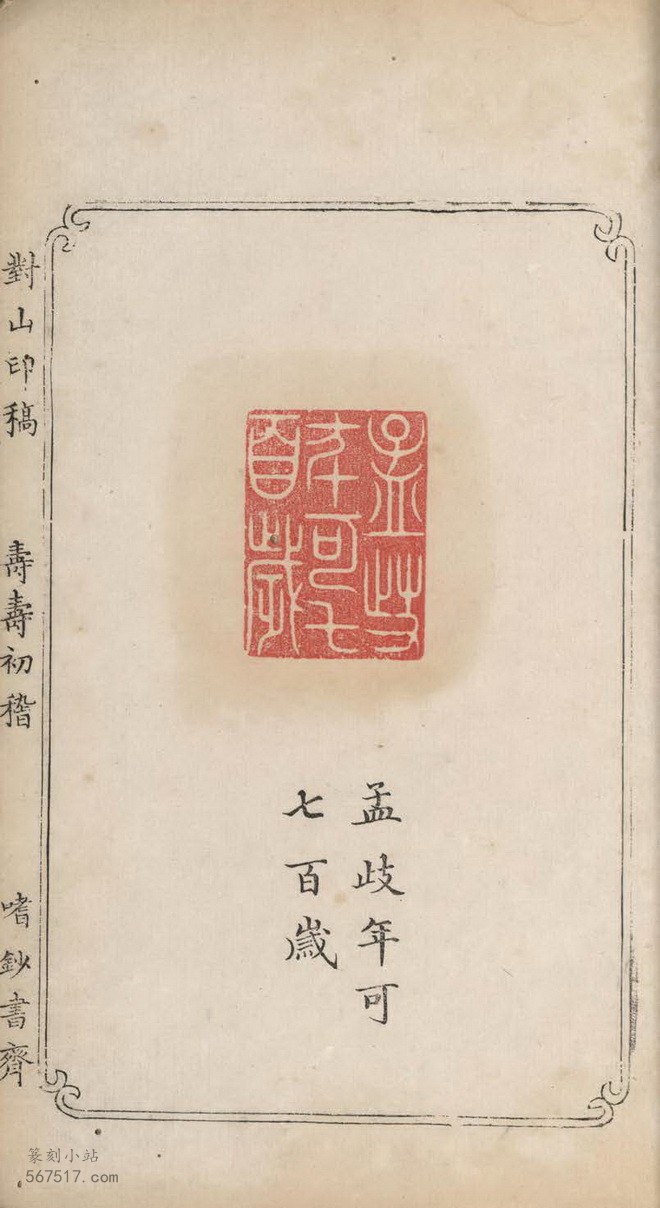 孟歧年可七百歲
孟歧年可
七百歲
對山印稿 壽壽初稽 嗜鈔書齊
篆刻小站
567517.com